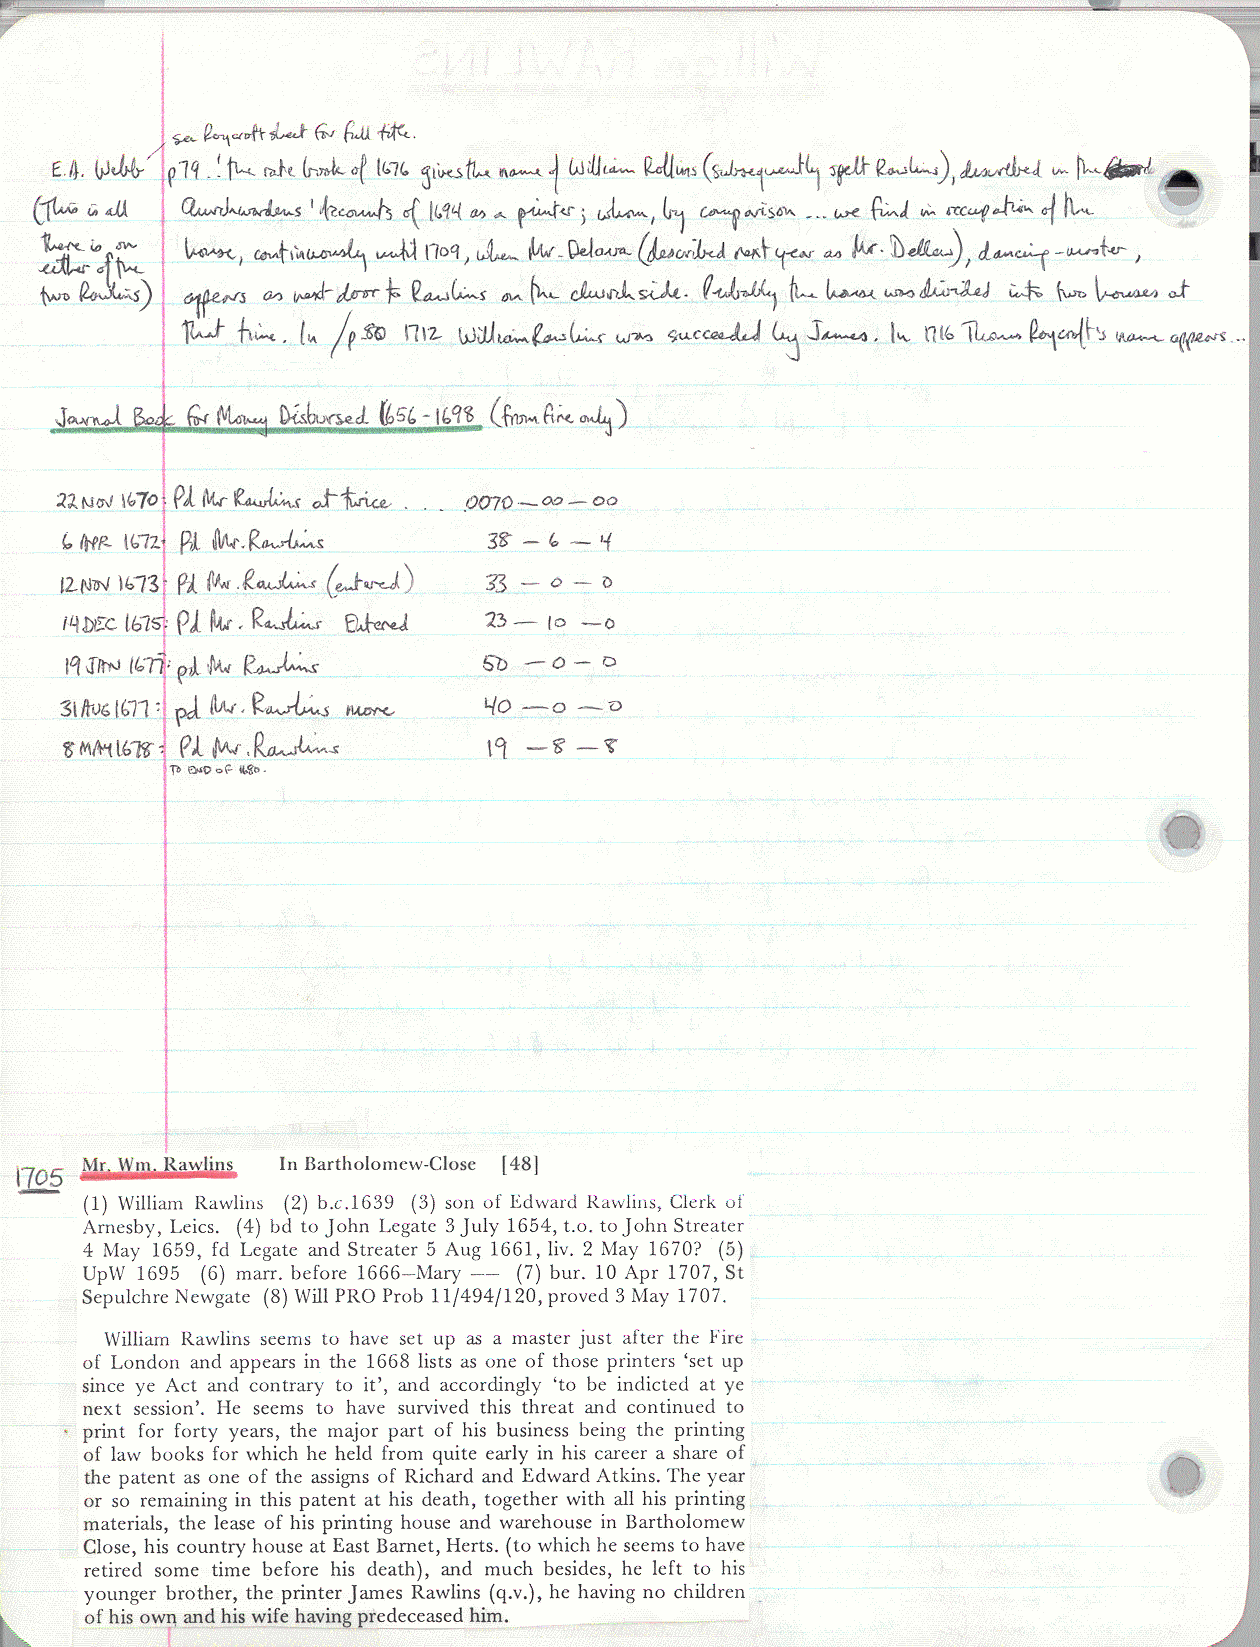 see Roycroft sheet for full title.
E.A. Webb p79. 'the rate book of 1676 gives the name of William Rollins (subsequently spelt Rawlins), described in the
(This is all there is on either of the two Rawlins)
Churchwardens' Accounts of 1694 as a printer; whom, by comparison ... we find in occupation of the
house, continuously until 1709, when Mr. Delawa (described next year as Mr. Dellaw), dancing-master,
appears as next door to Rawlins on the church side. Probably the house was divided into two houses at
that time. In /p.80 1712 William Rawlins was succeeded by James. In 1716 Thomas Roycroft's name appears...
Journal Book for Money Disbursed 1656-1698 (from fire only)
22 NOV 1670: Pd Mr Rawlins at twice . ... 0070-00-00
6 APR 1672: Pd Mr. Rawlins 38-6-4
12 NOV 1673: Pd Mr. Rawlins (entered) 33-0-0
14 DEC 1675: Pd Mr. Rawlins Entered 23-10-0
19 JAN 1677: pd Mr Rawlins 50-0-0
31 AUG 1677: pd Mr. Rawlins more 40-0-0
8 MAY 1678: Pd Mr. Rawlins 19-8-8
TO END OF 1680.
1705 Mr. Wm. Rawlins In Bartholomew-Close [48]
(1) William Rawlins (2) b.c.1639 (3) son of Edward Rawlins, Clerk of
Arnesby, Leics. (4) bd to John Legate 3 July 1654, t.o. to John Streater
4 May 1659, fd Legate and Streater 5 Aug 1661, liv. 2 May 1670? (5)
UpW 1695 (6) marr. before 1666—Mary —— (7) bur. 10 Apr 1707, St
Sepulchre Newgate (8) Will PRO Prob 11/494/120, proved 3 May 1707.
William Rawlins seems to have set up as a master just after the Fire
of London and appears in the 1668 lists as one of those printers 'set up
since ye Act and contrary to it', and accordingly 'to be indicted at ye
next session'. He seems to have survived this threat and continued to
print for forty years, the major part of his business being the printing
of law books for which he held from quite early in his career a share of
the patent as one of the assigns of Richard and Edward Atkins. The year
or so remaining in this patent at his death, together with all his printing
materials, the lease of his printing house and warehouse in Bartholomew
Close, his country house at East Barnet, Herts. (to which he seems to have
retired some time before his death), and much besides, he left to his
younger brother, the printer James Rawlins (q.v.), he having no children
of his own and his wife having predeceased him.